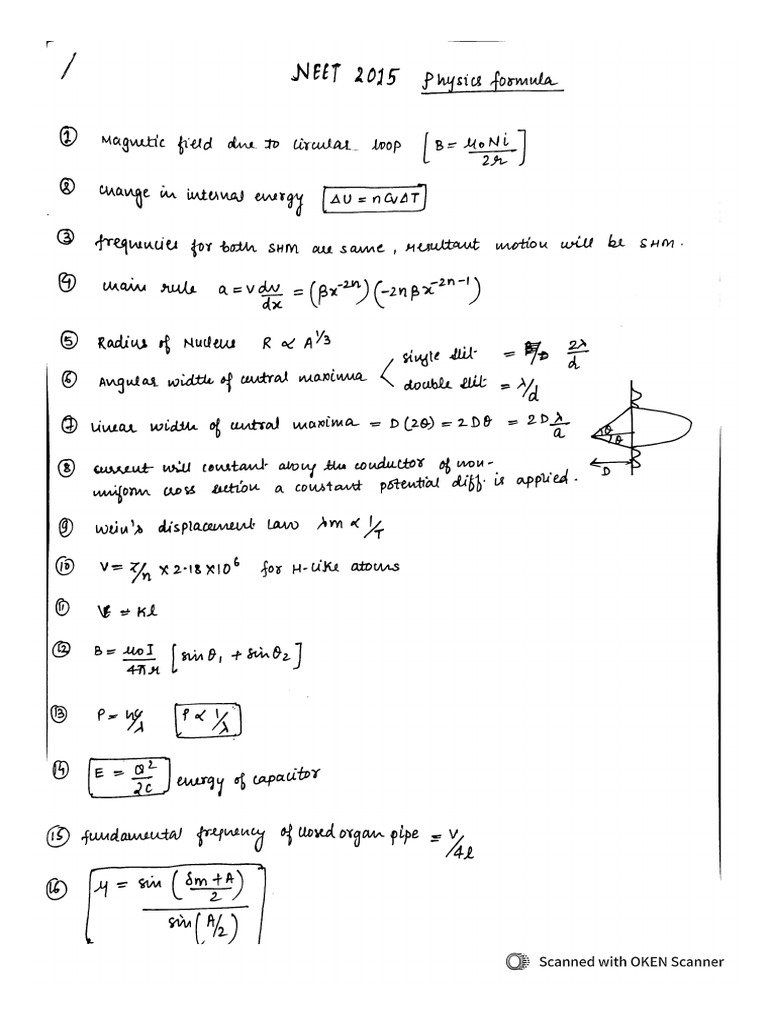 1
NEET 2015 Physics formula
① Magnetic field due to circular loop [B = μ₀Ni/2r]
② change in internal energy ΔU = nCvΔT
③ frequencies for both SHM are same, resultant motion will be SHM.
④ chain rule a = v dv/dx = (βx⁻²ⁿ)(-2nβx⁻²ⁿ⁻¹)
⑤ Radius of Nucleus R ∝ A^1/3
⑥ Angular width of central maxima < single slit = 2λ/d
double slit = λ/d
⑦ Linear width of central maxima = D(2θ) = 2Dθ = 2Dλ/a
θ
θ
D
⑧ current will constant along the conductor of non-
uniform cross section a constant potential diff. is applied.
⑨ Wein's displacement Law λm ∝ 1/T
⑩ V = Z/n × 2.18 × 10⁶ for H-like atoms
⑪ = Kl
⑫ B = μ₀I/4πr [sinθ₁ + sinθ₂]
⑬ P ∝ 1/λ
⑭ E = Q²/2C energy of capacitor
⑮ fundamental frequency of closed organ pipe = V/4l
⑯ μ = sin(δm+A/2)/sin(A/2)
Scanned with OKEN Scanner